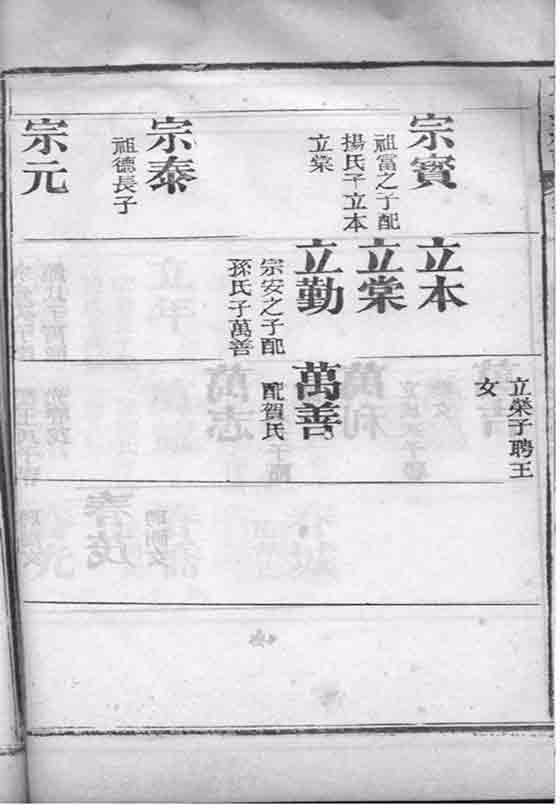 宗寳
祖富之子配
揚氏子立本
立棠
宗泰
祖德長子
宗元
立本
立棠
立勤
宗安之子配
孫氏子萬善
立榮子聘王
女
萬善
配賀氏